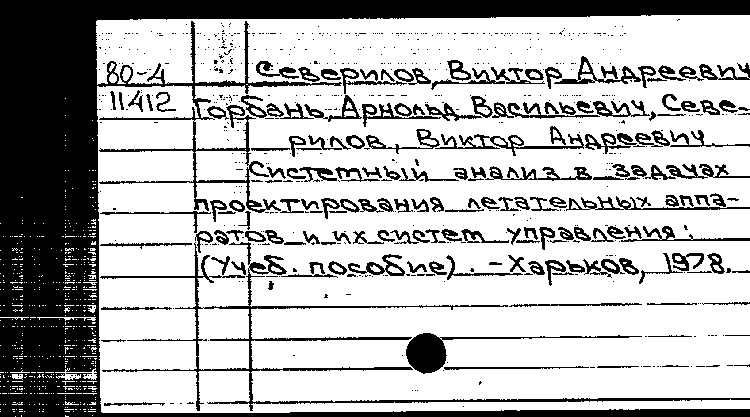 80-4 Северилов, Виктор Андреевич
11412 Горбань, Арнольд Васильевич, Севе-
рилов, Виктор Андреевич.
Системный анализ в задачах
проектирования летательных аппа-
ратов и их систем управления:
(Учеб. пособие). -Харьков, 1978.